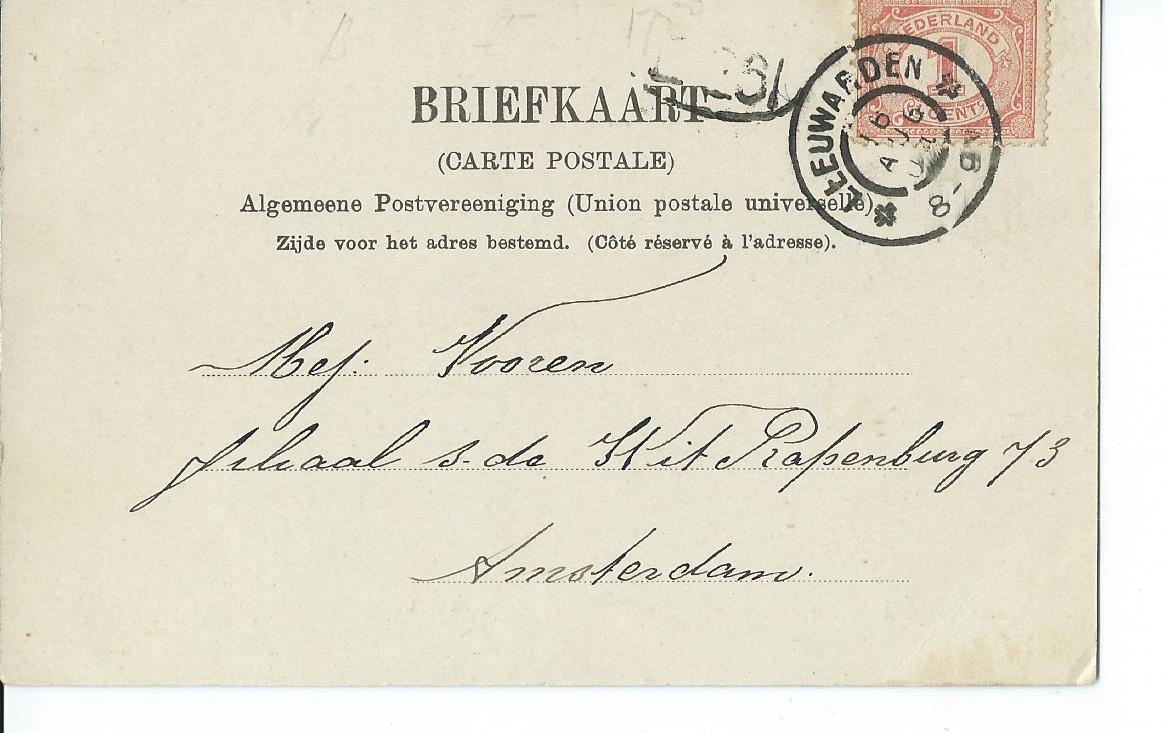 NEDERLAND
1
CENT
LEEUWARDEN
16
AUG
8-9V
BRIEFKAART
(CARTE POSTALE)
Algemeene Postvereeniging (Union postale universelle).
Zijde voor het adres bestemd. (Côté réservé à l'adresse).
Mej: Vooren
filiaal s. de Wit Rapenburg 73
Amsterdam.